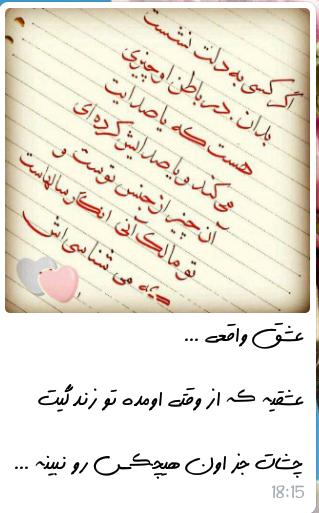 اگر کسی به دلت نشست
بدان . در باطن او چیزی
هست که یا صدایت
می‌کند و یا صدایش کرده‌ای
آن چیز از جنس توست و
تو مالک آنی انگار سالهاست
که می شناسی اش
عشق واقعی ...
عشقیه که از وقتی اومده تو زندگیت
چشات جز اون هیچکس رو نبینه ...
18:15